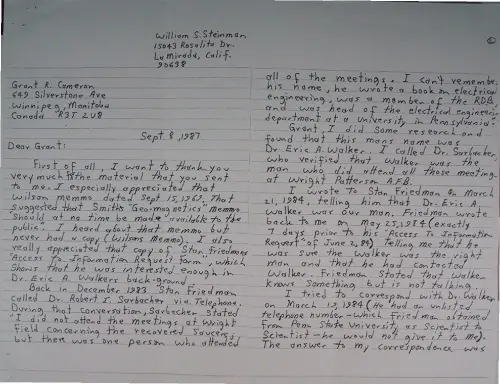 William S. Steinman
15043 Rosalita Dr.
La Mirada, Calif.
90638
Grant R. Cameron
649 Silverstone Ave
Winnipeg, Manitoba
Canada R3T 2V8
Sept. 8, 1987
Dear Grant:
First of all, I want to thank you
very much the material that you sent
to me. I especially appreciated that
Wilson memmo dated Sept. 15, 1950. That
suggested that Smith's "Geo-magnetics" memmo
"Should at no time be made available to the
public". I heard about that memmo but
never had a copy (Wilsons Memmo). I also
really appreciated that copy of Stan Friedmans
"Access to Information Request form" which
Shows that he was interested enough in
Dr. Eric A. Walkers back-ground.
Back in December 1983 Stan Friedman
called Dr. Robert I. Sarbacher via Telephone.
During that conversation, Sarbacher stated
"I did not attend the meetings at Wright
Field concerning the recovered Saucers,
but there was one person who attended
①
all of the meetings. I can't remember
his name, he wrote a book on electrical
engineering, was a member of the RDB,
and was head of the electrical engineering
department at a University in Pennsylvania".
Grant, I did some research and
found that this mans name was
Dr. Eric A. Walker. I called Dr. Sarbacher
who verified that Walker was the
man who did attend all those meetings
at Wright Patterson A.F.B.
I wrote to Stan Friedman on March
21, 1984, telling him that Dr. Eric A.
Walker was our man. Friedman wrote
back to me on May 25, 1984 (exactly
7 days prior to his "Access To Information
Request" of June 2, 84) Telling me that he
was sure the Walker was the right
man and that he had contacted
Walker. Friedman Stated that Walker
knows something but is not talking.
I tried to correspond with Dr. Walker
on March 1984 (He had an unlisted
telephone number - which Friedman obtained
from Penn State University, as Scientist to
Scientist - he would not give it to me).
The answer to my correspondence was